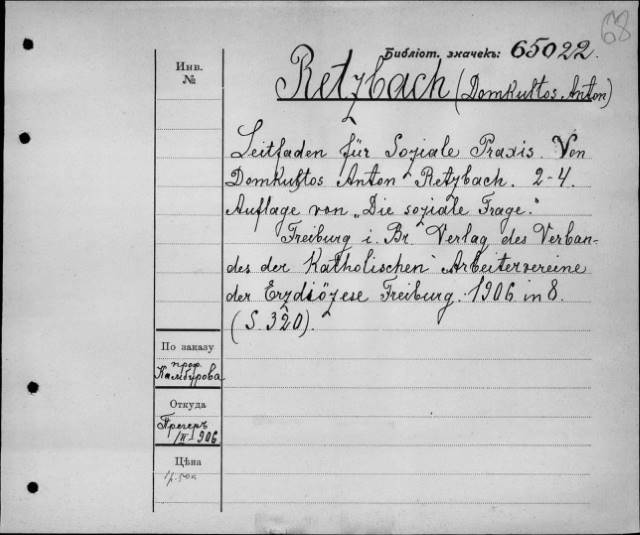 68
Библіот. значекъ: 65022.
Инв.
№
Retzbach (Domkustos Anton)
Leitfaden für Soziale Praxis. Von
Domkustos Anton Retzbach. 2-4.
Auflage von „Die soziale Frage."
Freiburg i. Br. Verlag des Verban-
des der Katholischen Arbeitervereine
der Erzdiözese Freiburg. 1906 in 8.
(S. 320).
По заказу
проф.
Камбурова
Откуда
Прегеръ
/II 906
Цѣна